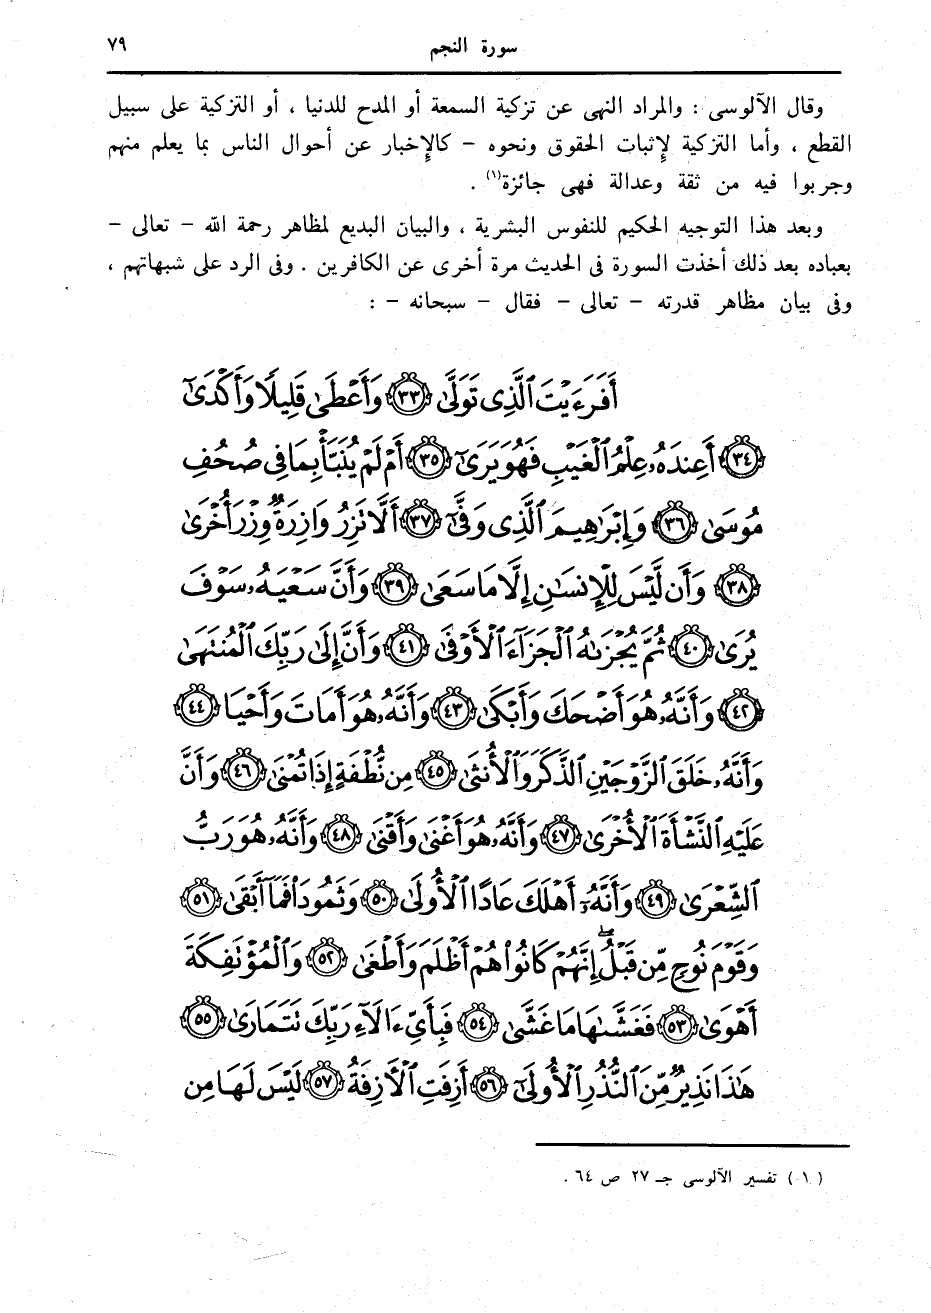 سورة النجم ٧٩
وقال الآلوسى : والمراد النهى عن تزكية السمعة أو المدح للدنيا ، أو التزكية على سبيل
القطع ، وأما التزكية لإثبات الحقوق ونحوه – كالإخبار عن أحوال الناس بما يعلم منهم
وجربوا فيه من ثقة وعدالة فهى جائزة(١) .
وبعد هذا التوجيه الحكيم للنفوس البشرية ، والبيان البديع لمظاهر رحمة الله – تعالى –
بعباده بعد ذلك أخذت السورة فى الحديث مرة أخرى عن الكافرين . وفى الرد على شبهاتهم ،
وفى بيان مظاهر قدرته – تعالى – فقال – سبحانه – :
أَفَرَءَيْتَ ٱلَّذِى تَوَلَّىٰ ٣٣ وَأَعْطَىٰ قَلِيلًا وَأَكْدَىٰٓ
٣٤ أَعِندَهُۥ عِلْمُ ٱلْغَيْبِ فَهُوَ يَرَىٰٓ ٣٥ أَمْ لَمْ يُنَبَّأْ بِمَا فِى صُحُفِ
مُوسَىٰ ٣٦ وَإِبْرَٰهِيمَ ٱلَّذِى وَفَّىٰٓ ٣٧ أَلَّا تَزِرُ وَازِرَةٌ وِزْرَ أُخْرَىٰ
٣٨ وَأَن لَّيْسَ لِلْإِنسَٰنِ إِلَّا مَا سَعَىٰ ٣٩ وَأَنَّ سَعْيَهُۥ سَوْفَ
يُرَىٰ ٤٠ ثُمَّ يُجْزَىٰهُ ٱلْجَزَآءَ ٱلْأَوْفَىٰ ٤١ وَأَنَّ إِلَىٰ رَبِّكَ ٱلْمُنتَهَىٰ
٤٢ وَأَنَّهُۥ هُوَ أَضْحَكَ وَأَبْكَىٰ ٤٣ وَأَنَّهُۥ هُوَ أَمَاتَ وَأَحْيَا ٤٤
وَأَنَّهُۥ خَلَقَ ٱلزَّوْجَيْنِ ٱلذَّكَرَ وَٱلْأُنثَىٰ ٤٥ مِن نُّطْفَةٍ إِذَا تُمْنَىٰ ٤٦ وَأَنَّ
عَلَيْهِ ٱلنَّشْأَةَ ٱلْأُخْرَىٰ ٤٧ وَأَنَّهُۥ هُوَ أَغْنَىٰ وَأَقْنَىٰ ٤٨ وَأَنَّهُۥ هُوَ رَبُّ
ٱلشِّعْرَىٰ ٤٩ وَأَنَّهُۥٓ أَهْلَكَ عَادًا ٱلْأُولَىٰ ٥٠ وَثَمُودَا۟ فَمَآ أَبْقَىٰ ٥١
وَقَوْمَ نُوحٍ مِّن قَبْلُ ۖ إِنَّهُمْ كَانُوا۟ هُمْ أَظْلَمَ وَأَطْغَىٰ ٥٢ وَٱلْمُؤْتَفِكَةَ
أَهْوَىٰ ٥٣ فَغَشَّىٰهَا مَا غَشَّىٰ ٥٤ فَبِأَىِّ ءَالَآءِ رَبِّكَ تَتَمَارَىٰ ٥٥
هَٰذَا نَذِيرٌ مِّنَ ٱلنُّذُرِ ٱلْأُولَىٰٓ ٥٦ أَزِفَتِ ٱلْءَازِفَةُ ٥٧ لَيْسَ لَهَا مِن
(١) تفسير الآلوسى جـ ٢٧ ص ٦٤ .